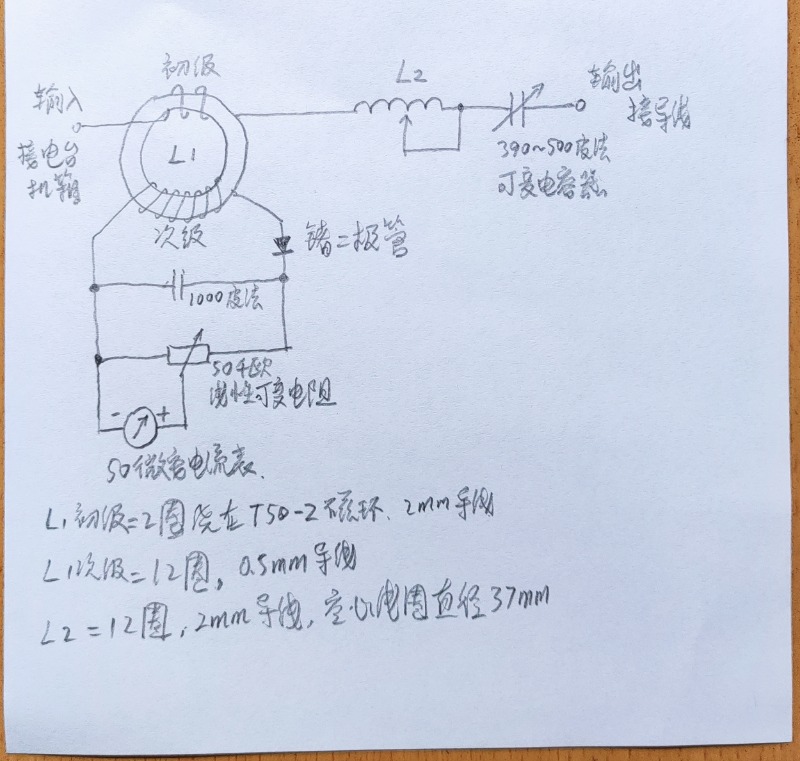 初级
L2
输出
接导线
输入
接电台
机箱
L1
390~500皮法
可变电容器
次级
锗二极管
1000皮法
50千欧
线性可变电阻
- +
50微安电流表.
L1初级=2圈绕在T50-2磁环、2mm导线
L1次级=12圈, 0.5mm导线
L2=12圈, 2mm导线, 空心线圈直径37mm